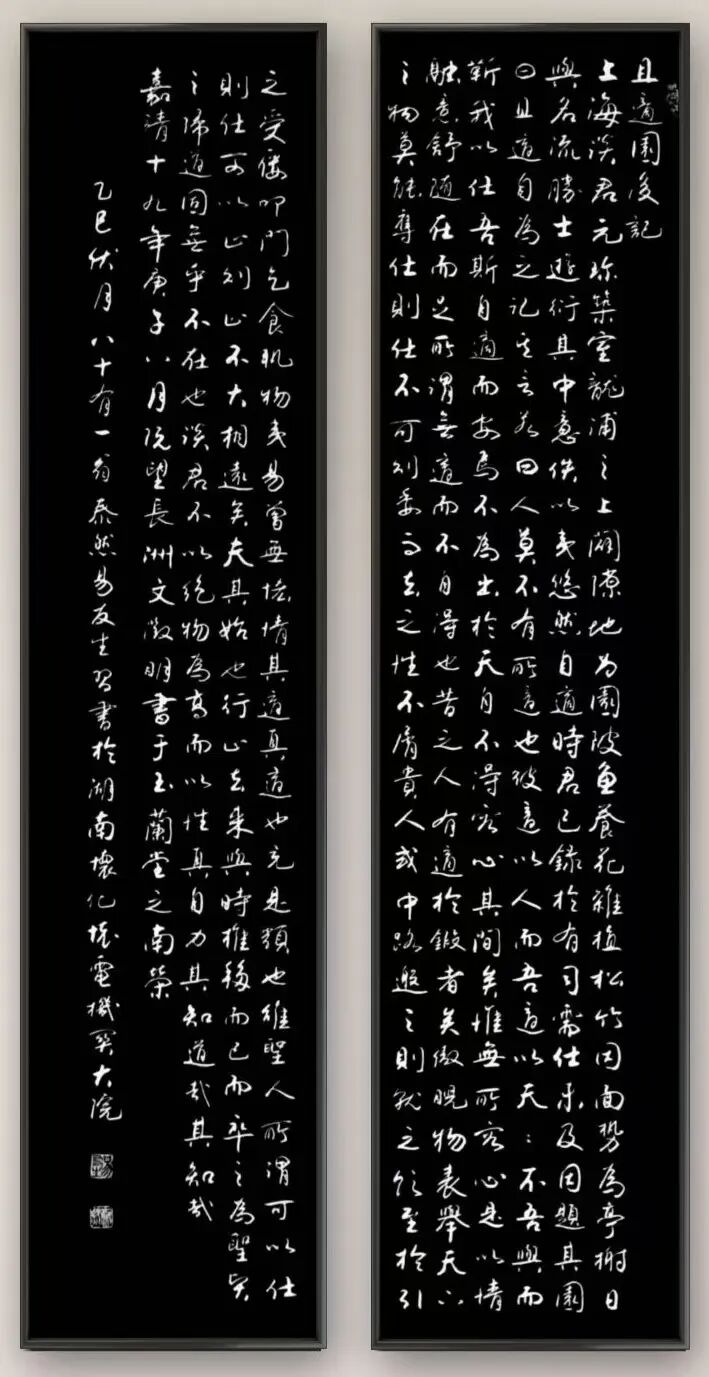 且適園後記
上海談君元珎築室龍浦之上闢隙地為園陂魚養花雜植松竹因面勢為亭榭日
與名流勝士遊衍其中意佚以夷悠然自適時君已録於有司需仕未及因題其園
曰且適自為之記其言若曰人莫不有所適也彼適以人而吾適以天:不吾與而
靳我以仕吾斯自適而安焉不為出於天自不得容心其間矣惟無所容心是以情
融意舒随在而足所謂無適而不自得也昔之人有適於鍛者矣傲睨物表舉天下
之物莫能奪仕則仕不可則委而去之性不屑貴人或中路邀之則就之飲至於引
之受偻叩門乞食肌物夷易曾無恡情其適真適也充是類也雖聖人所謂可以仕
則仕可以止則止不大相遠矣夫其始也行止去来與時推移而已而卒之為聖賢
之歸道固無乎不在也談君不以絶物為高而以性真自力其知道哉其知哉
嘉靖十九年庚子八月既望長洲文徵明書于玉蘭堂之南榮
乙巳伏月八十有一翁泰然易友生習書於湖南懷化境電機関大院